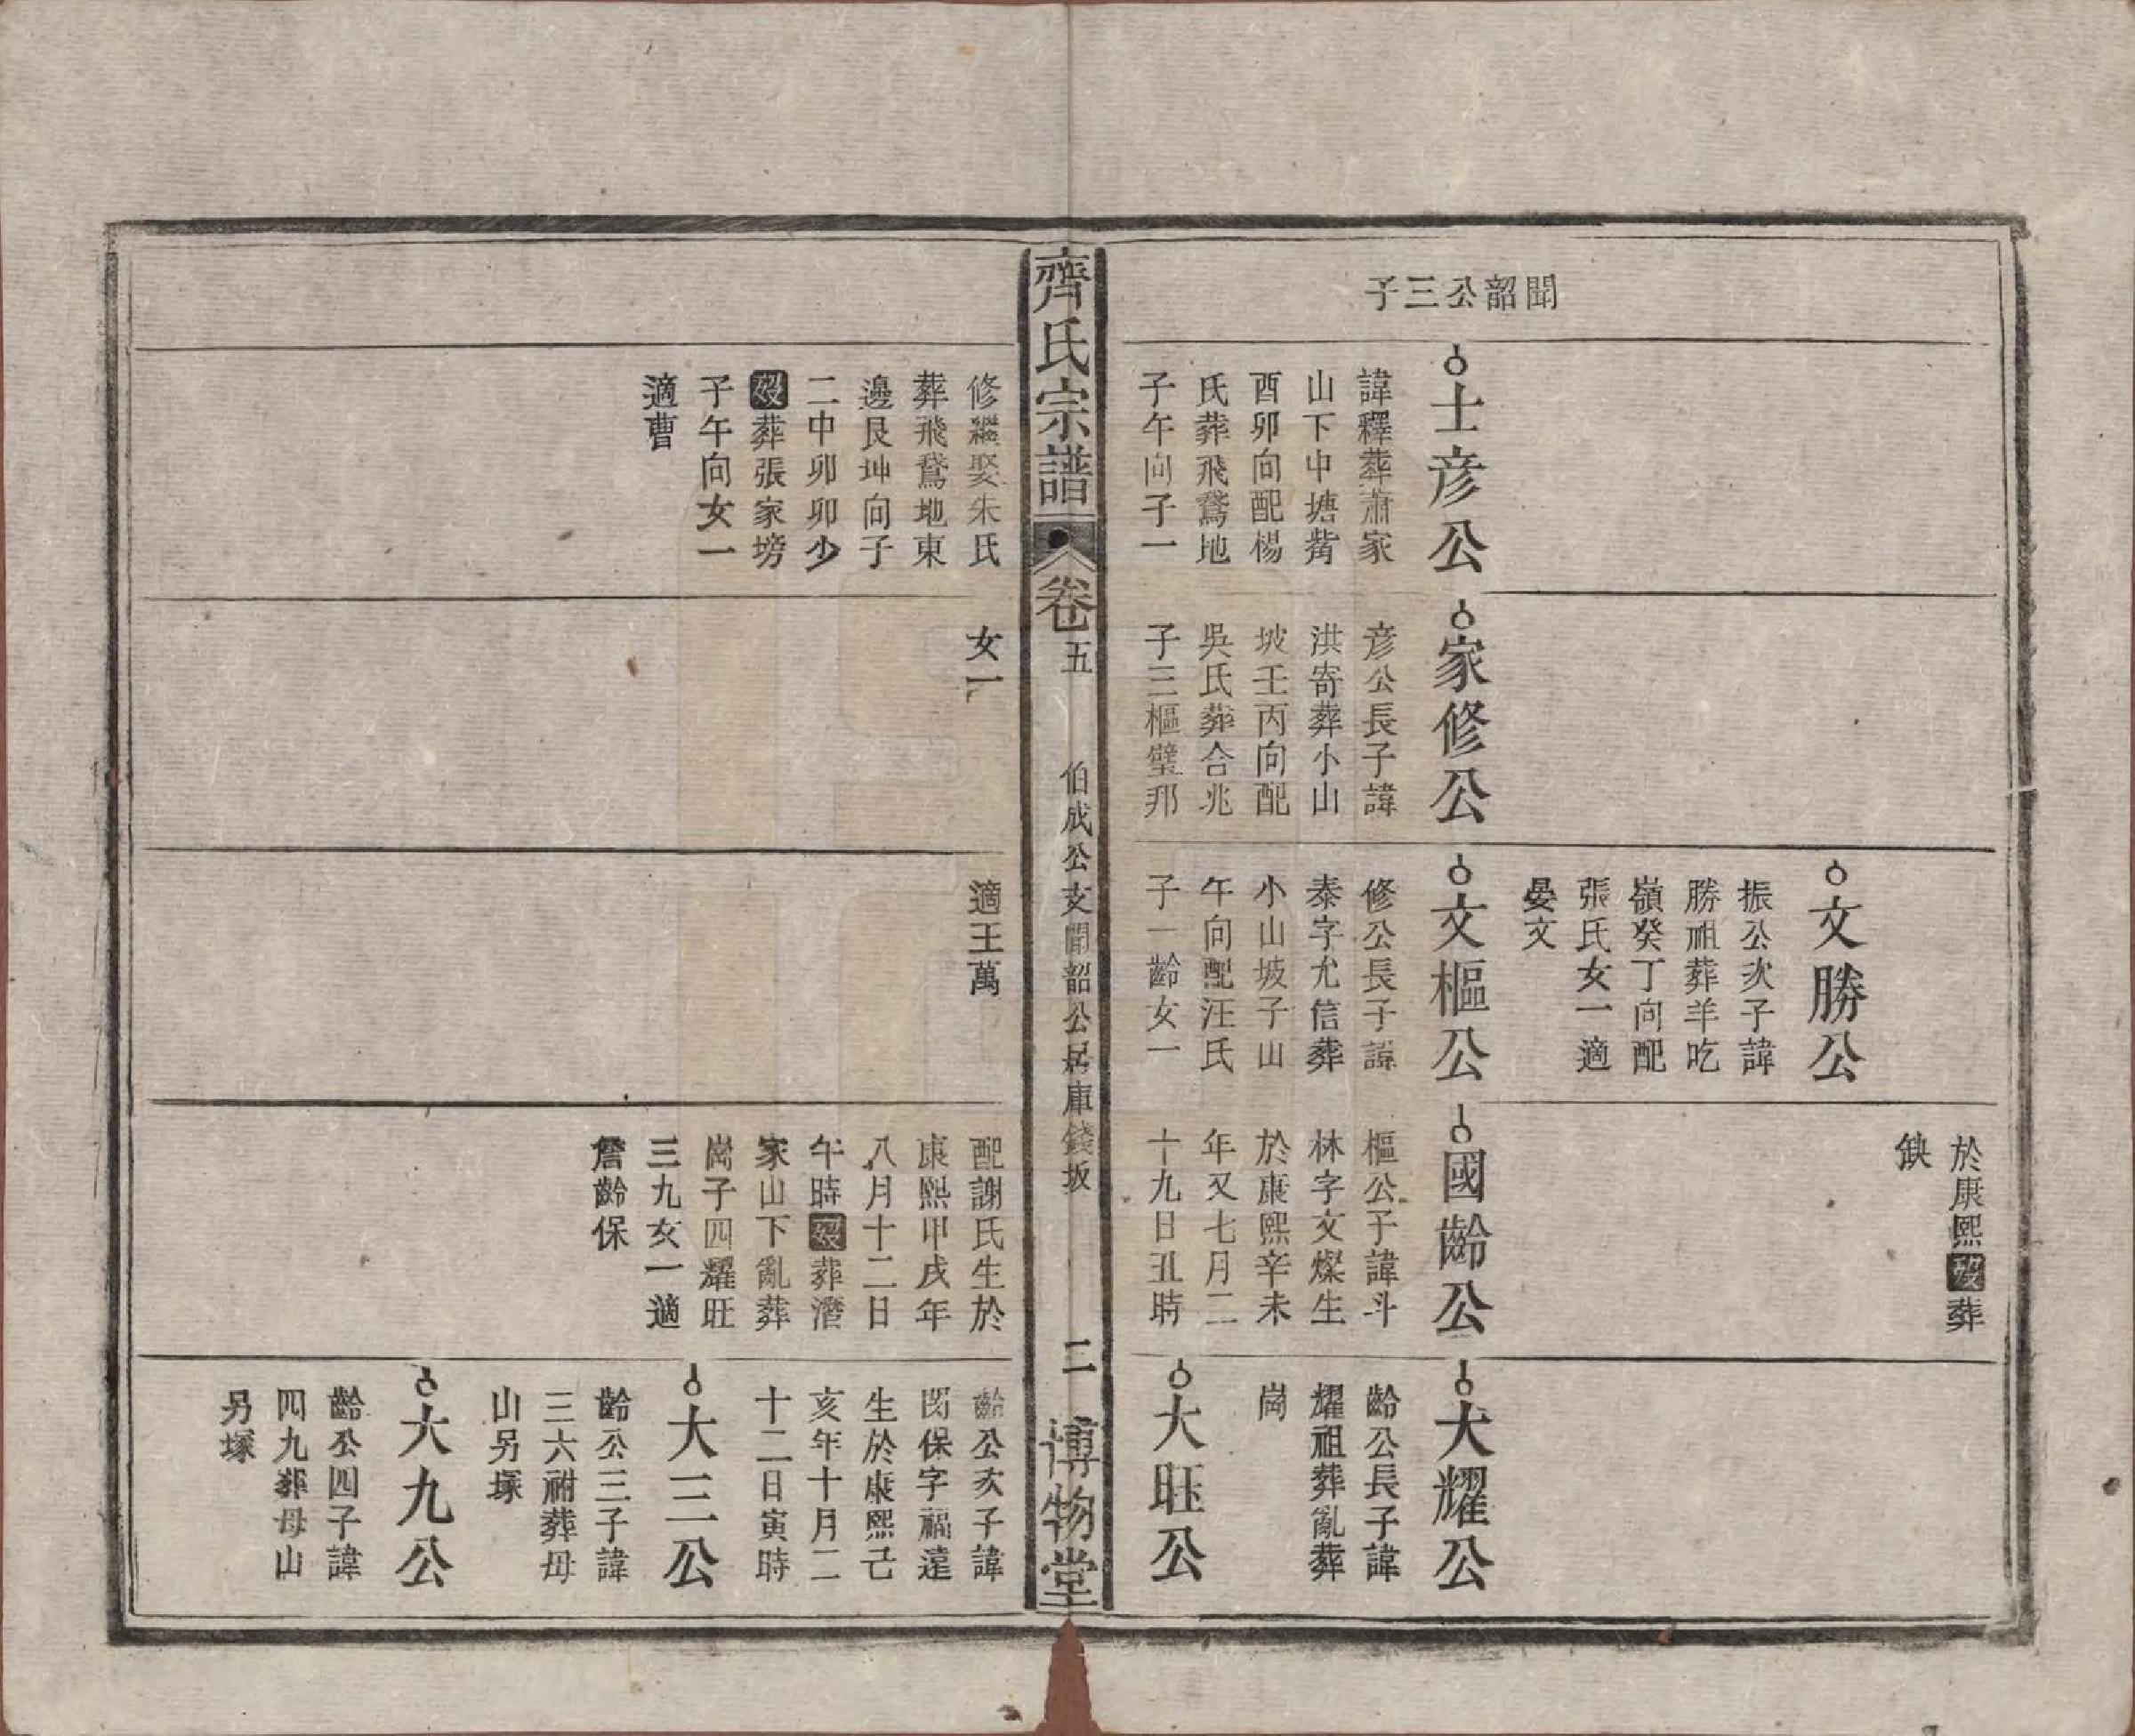 聞韶公三子
士彥公
諱釋葬蕭家
山下中塘觜
酉卯向配楊
氏葬飛鵞地
子午向子一
家修公
彦公長子諱
洪寄葬小山
坡壬丙向配
吳氏葬合兆
子三樞璧邦
文勝公
振公次子諱
勝祖葬羊吃
嶺癸丁向配
張氏女一適
晏文
文樞公
修公長子諱
泰字允信葬
小山坡子山
午向配汪氏
子一齡女一
於康熙歿葬
缺
國齡公
樞公子諱斗
林字文燦生
於康熙辛未
年又七月二
十九日丑時
大耀公
齡公長子諱
耀祖葬亂葬
崗
大旺公
齊氏宗譜
卷五
伯成公支聞韶公居庫錢坂
二
博物堂
修繼娶朱氏
葬飛鵞地東
邊艮坤向子
二中卯卯少
歿葬張家塝
子午向女一
適曹
女一
適王萬
配謝氏生於
康熙甲戌年
八月十二日
午時歿葬潛
家山下亂葬
崗子四耀旺
三九女一適
詹齡保
齡公次子諱
閔保字福遠
生於康熙己
亥年十月二
十二日寅時
大三公
齡公三子諱
三六祔葬母
山另塚
大九公
齡公四子諱
四九葬母山
另塚